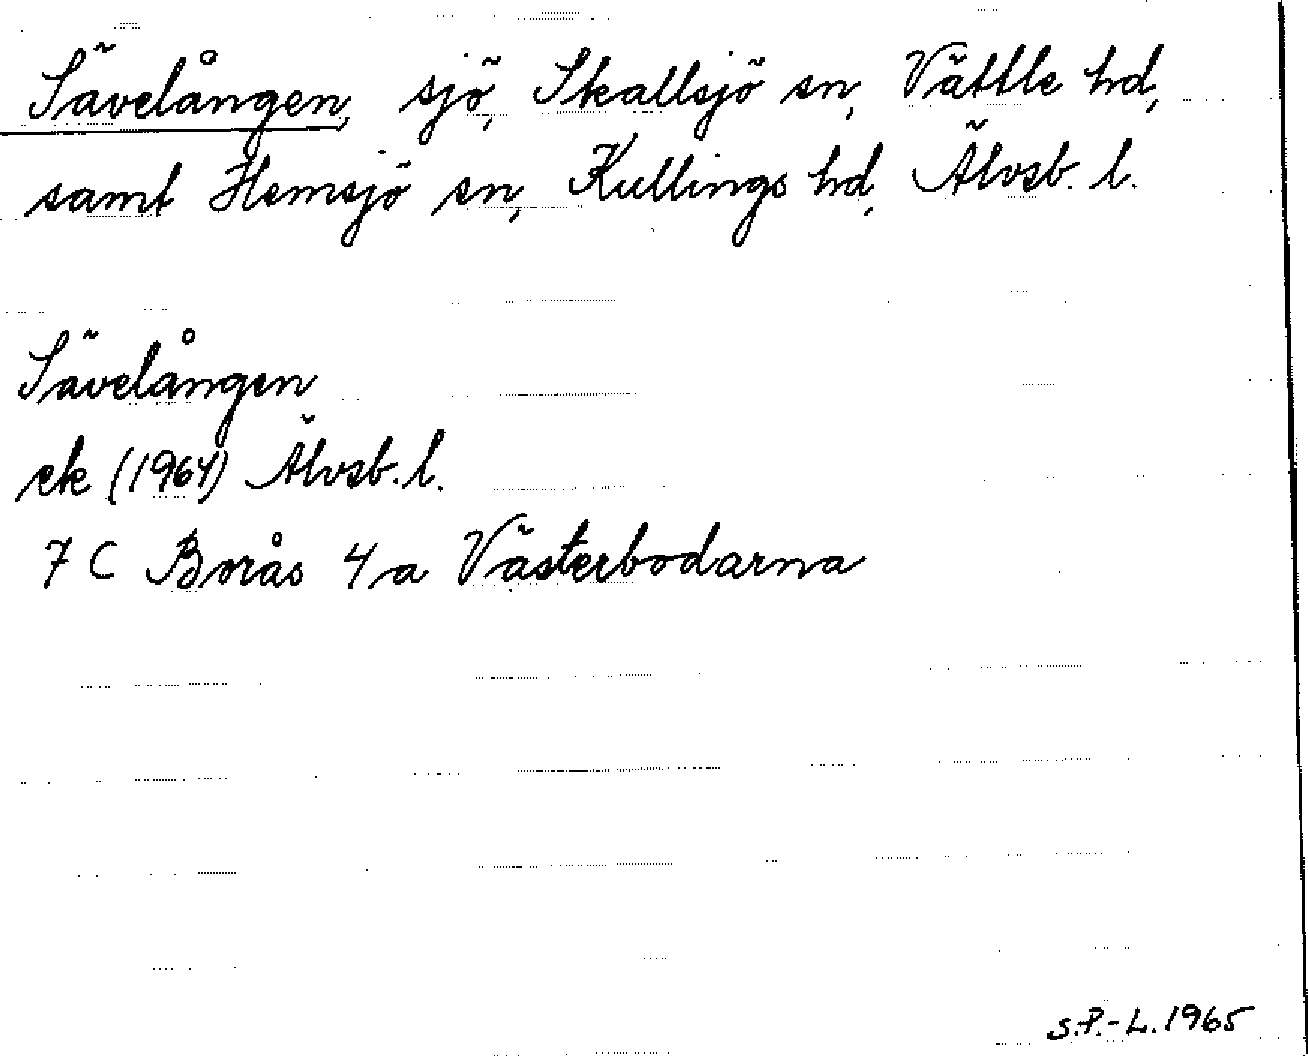 Sävelången, sjö, Skallsjö sn, Vättle hd,
samt Hemsjö sn, Kullings hd, Älvsb. l.
Sävelången
ek (1964) Älvsb. l.
7 C Borås 4a Västerbodarna
S.P.-L. 1965